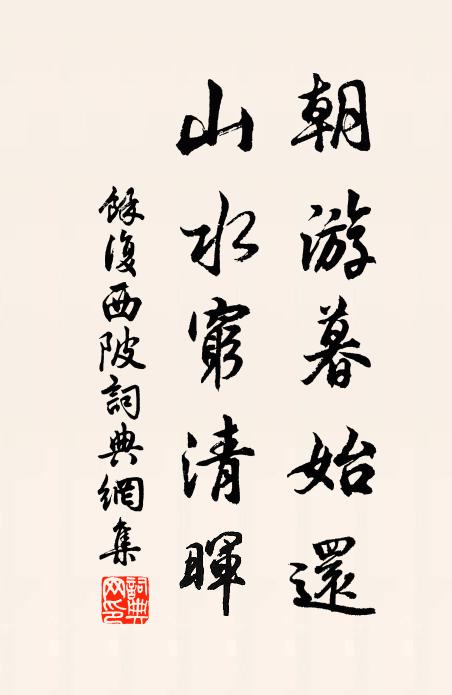 朝游暮始還
山水窮清暉
餘復西陂詞典網集
詞典网印